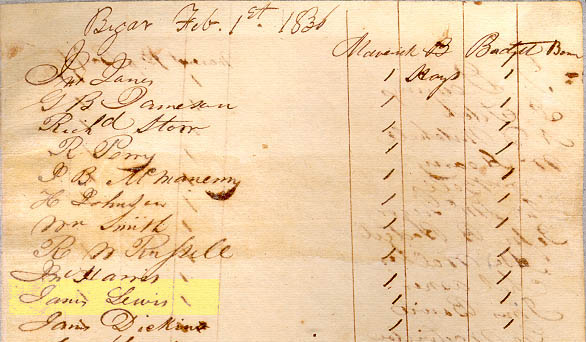 Bejar Feb. 1st. 1836
Maverick B Badgett Bon
Jno Janes 1 Hays 1
G B Dameson 1 1
Richd Storr 1 1
R Perry 1 1
J B McManemy 1 1
H Johnson 1 1
Wm Smith 1 1
R W Russell 1 1
Jno Harris 1 1
James Lewis 1 1
James Dickens 1 1